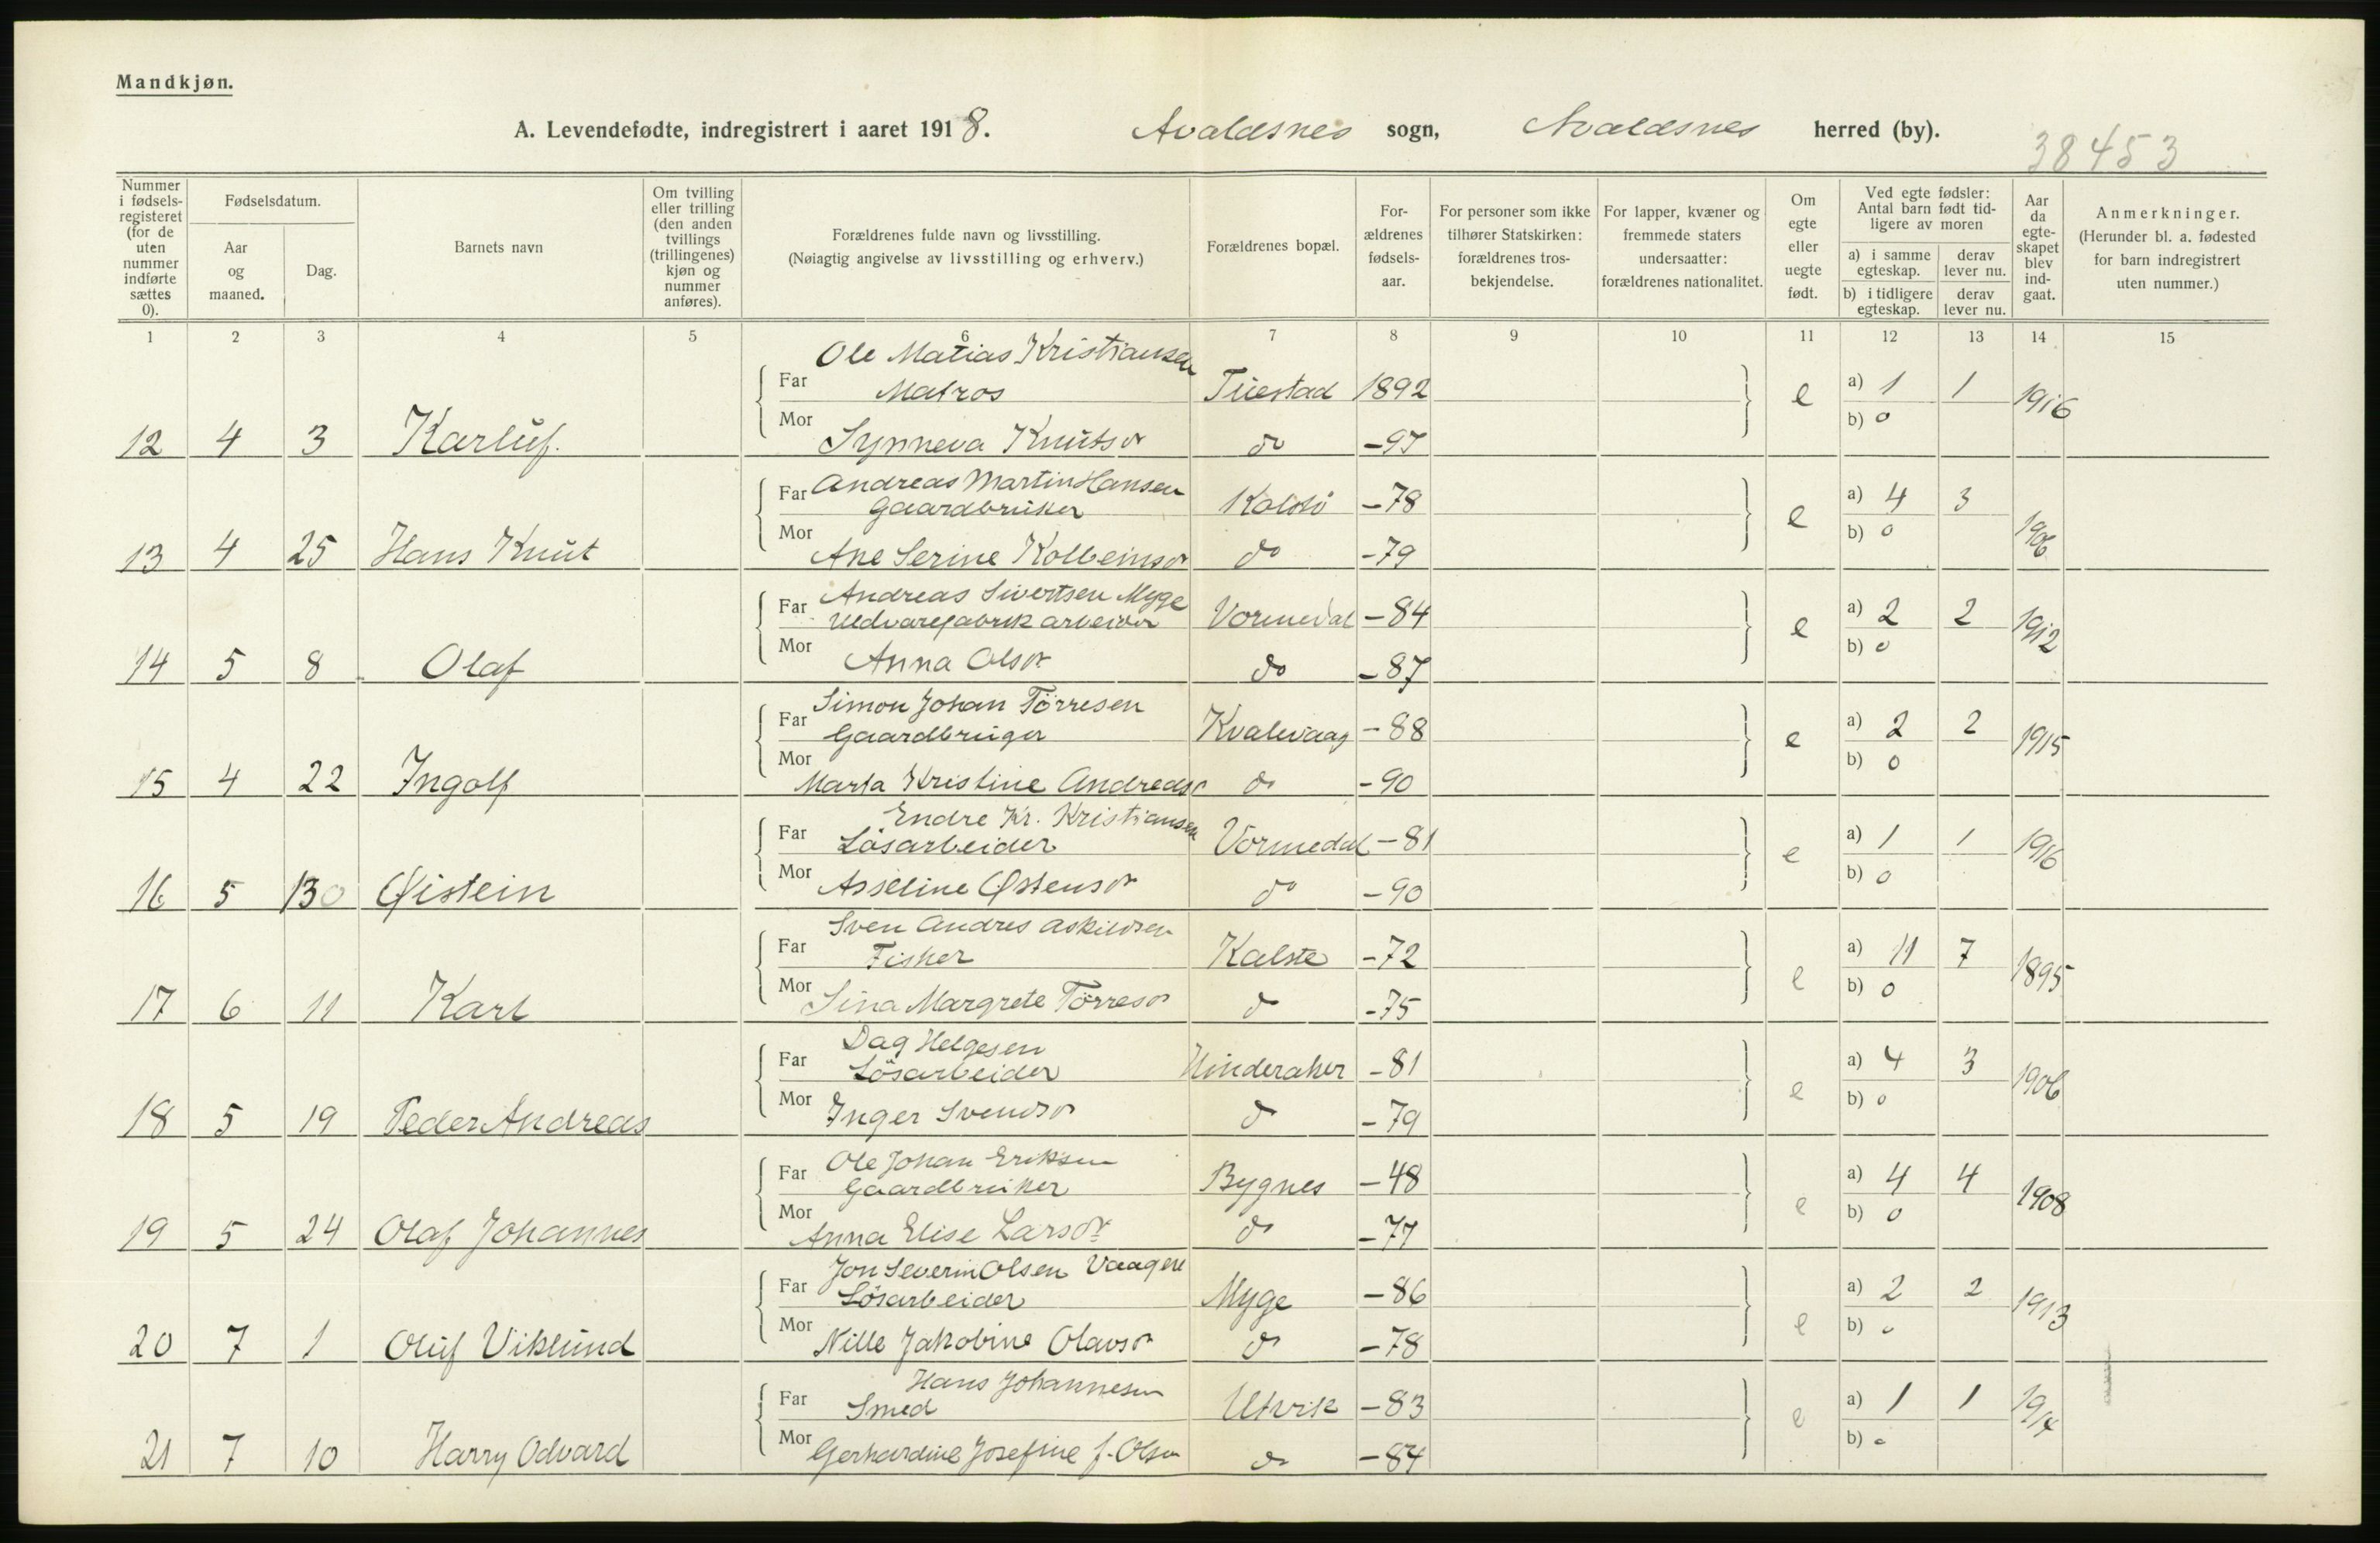 Mandkjøn.
A. Levendefødte, indregistrert i aaret 1918. Avaldsnes sogn, Avaldsnes herred (by).
38453
Nummer i fødsels-registeret (for de uten nummer indførte sættes 0).
Fødselsdatum.
Aar og maaned.
Dag.
Barnets navn
Om tvilling eller trilling (den anden tvillings (trillingenes) kjøn og nummer anføres).
Forældrenes fulde navn og livsstilling.
(Nøiagtig angivelse av livsstilling og erhverv.)
Forældrenes bopæl.
For-ældrenes fødsels-aar.
For personer som ikke tilhører Statskirken: forældrenes tros-bekjendelse.
For lapper, kvæner og fremmede staters undersaatter: forældrenes nationalitet.
Om egte eller uegte født.
Ved egte fødsler: Antal barn født tid-ligere av moren
a) i samme egteskap. derav lever nu.
b) i tidligere egteskap. derav lever nu.
Aar da egte-skapet blev ind-gaat.
Anmerkninger.
(Herunder bl. a. fødested for barn indregistrert uten nummer.)
1 2 3 4 5 6 7 8 9 10 11 12 13 14 15
Ole Matias Kristiansen
Far Matros Tuestad 1892 e a) 1 1 1916
Mor b) 0
12 4 3 Karluf. Synneva Knutsdr do -97
Far Andreas Martin Hansen
Gaardbruker -78 e a) 4 3 1906
Mor b) 0
13 4 25 Hans Knut Ane Serine Kolbeinsdr do -79
Far Andreas Sivertsen Myge
Uldvarefabrik arbeider Vormedal -84 e a) 2 2 1912
Mor b) 0
14 5 8 Olaf Anna Olsdr do -87
Far Simon Johan Tørresen
Gaardbruger Kvalevaag -88 e a) 2 2 1915
Mor b) 0
15 4 22 Ingolf Marta Kristine Andreasdr do -90
Endre Kr. Kristiansen
Far Løsarbeider Vormedal -81 e a) 1 1 1916
Mor b) 0
16 5 30 Øistein Asseline Østensdr do -90
Sven Andres Askildsen
Far Fisker Kalstø -72 e a) 11 7 1895
Mor b) 0
17 6 11 Karl Sina Margrete Tørresdr do -75
Dag Helgesen
Far Løsarbeider Hinderaker -81 e a) 4 3 1906
Mor b) 0
18 5 19 Peder Andreas Inger Svendsdr do -79
Far Ole Johan Eriksen
Gaardbruker Bygnes -48 e a) 4 4 1908
Mor b) 0
19 5 24 Olaf Johannes Anna Elise Larsdr do -77
Jon Severin Olsen Vaagen
Far Løsarbeider Myge -86 e a) 2 2 1913
Mor b) 0
20 7 1 Oluf Viklund Nille Jakobine Olavsdr do -78
Hans Johannesen
Far Smed Utvik -83 e a) 1 1 1914
Mor b) 0
21 7 10 Harry Odvard Gerhardine Josefine f. Olsen do -84